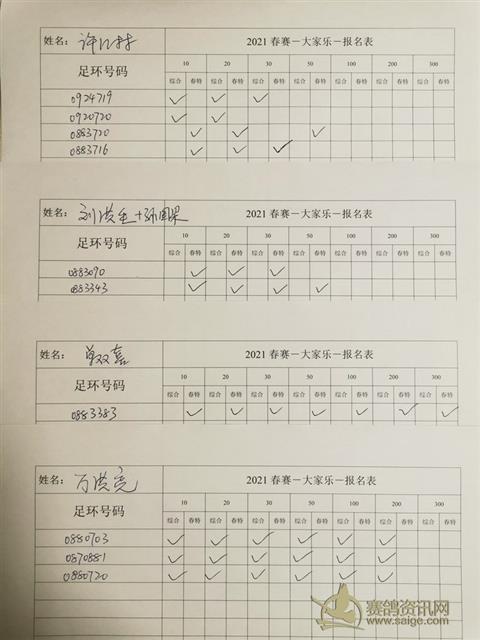 姓名： 2021 春赛－大家乐－报名表
足环号码 10 20 30 50 100 200 300
综合 春特 综合 春特 综合 春特 综合 春特 综合 春特 综合 春特 综合 春特
0924719 ✓ ✓ ✓
0920720 ✓ ✓
0883720 ✓ ✓ ✓
0883716 ✓ ✓ ✓
姓名： 2021 春赛－大家乐－报名表
足环号码 10 20 30 50 100 200 300
综合 春特 综合 春特 综合 春特 综合 春特 综合 春特 综合 春特 综合 春特
0883090 ✓ ✓ ✓
0883343 ✓ ✓ ✓ ✓
姓名： 单双喜 2021 春赛－大家乐－报名表
足环号码 10 20 30 50 100 200 300
综合 春特 综合 春特 综合 春特 综合 春特 综合 春特 综合 春特 综合 春特
0883383 ✓ ✓ ✓ ✓ ✓ ✓ ✓
姓名： 万洪亮 2021 春赛－大家乐－报名表
足环号码 10 20 30 50 100 200 300
综合 春特 综合 春特 综合 春特 综合 春特 综合 春特 综合 春特 综合 春特
0880703 ✓ ✓ ✓ ✓ ✓ ✓
0870881 ✓ ✓ ✓ ✓ ✓ ✓
0880720 ✓ ✓ ✓ ✓ ✓ ✓
赛鸽资讯网
www.saige.com